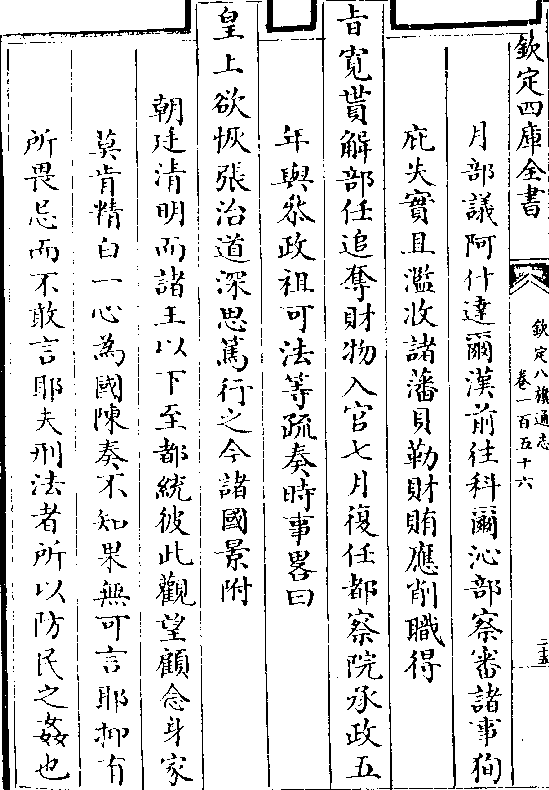 欽定四庫全書
欽定八旗通志
卷一百五十六
三五
月部議阿什達爾漢前往科爾沁部察審諸事狥
庇失實且濫收諸藩貝勒財賄應削職得
旨寛貰解部任追奪財物入官七月復任都察院承政五
年與叅政祖可法等疏奏時事畧曰
皇上欲恢張治道深思篤行之今諸國景附
朝廷清明而諸王以下至都統彼此觀望顧念身家
莫肯精白一心為國陳奏不知果無可言耶抑有
所畏忌而不敢言耶夫刑法者所以防民之姦也